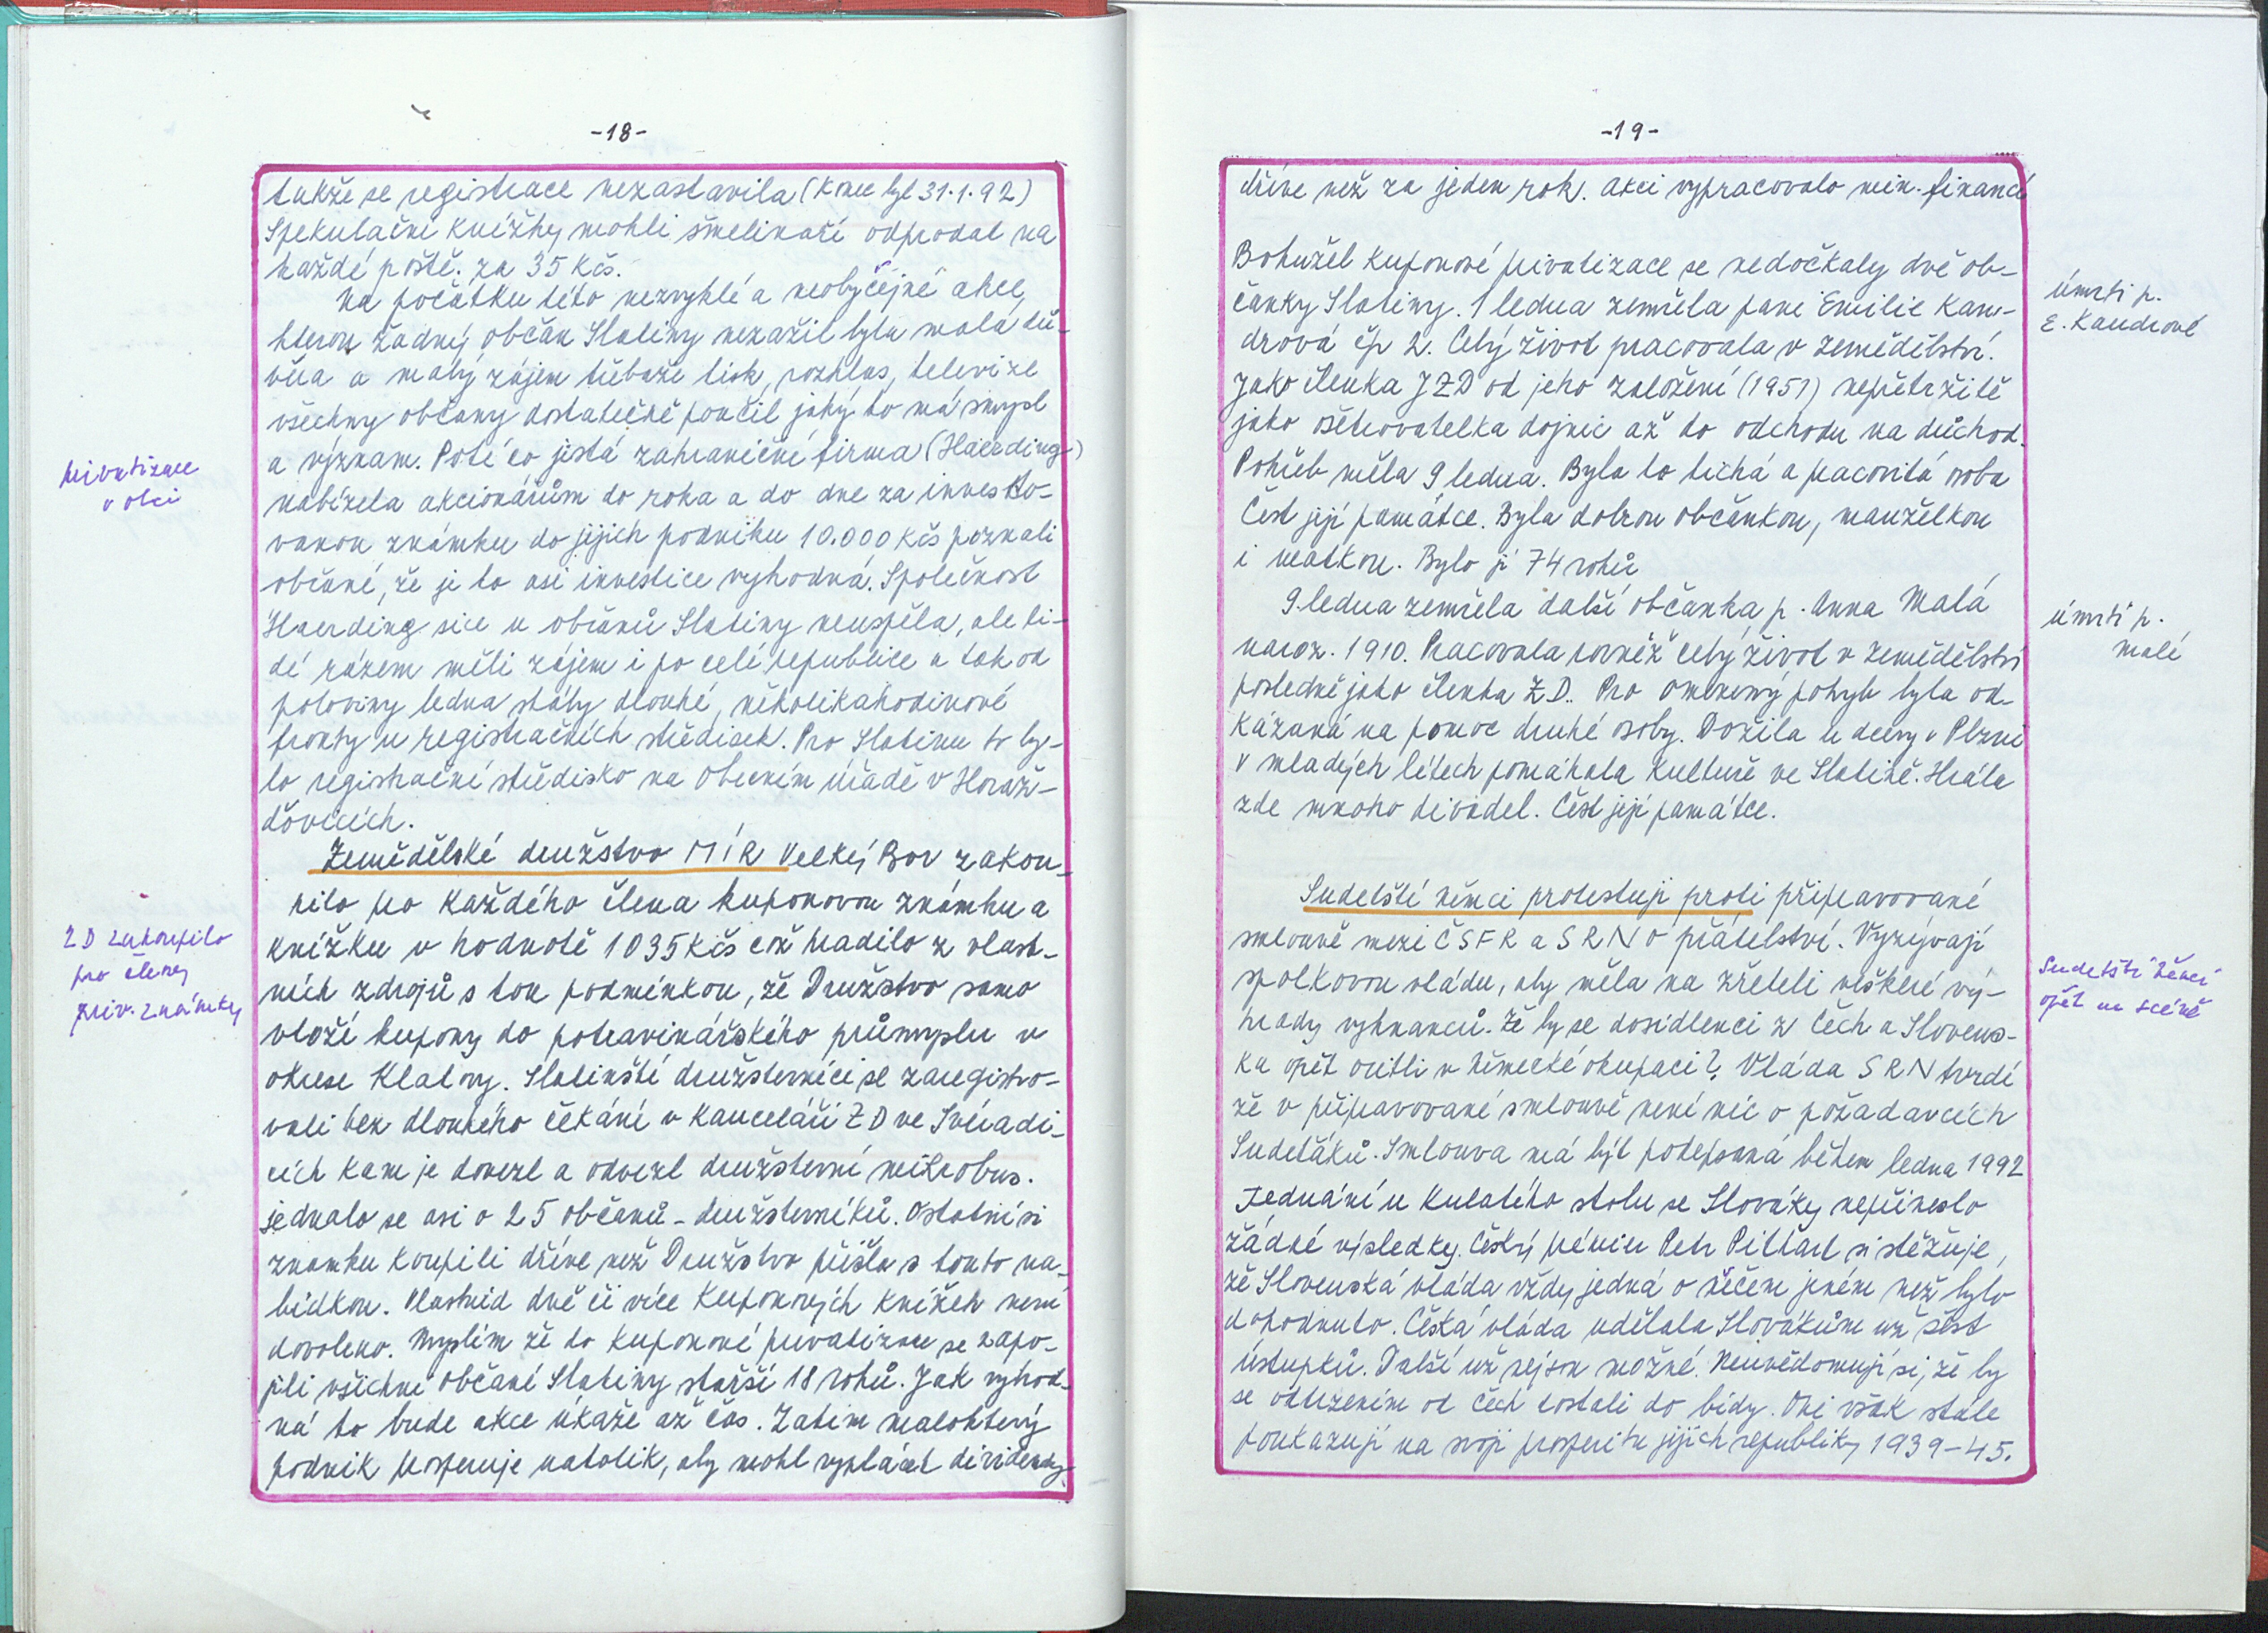 -18-
takže se registrace nezastavila (konec byl 31.1.92)
Spekulační knížky mohli šmelinaři odprodat na
každé poště. za 35 Kčs.
Na počátku této nezvyklé a neobyčejné akce,
kterou žádný občan Slatiny nezažil byla malá dů-
věra a malý zájem třebaže tisk, rozhlas, televize
všechny občany dostatečně poučil jaký to má smysl
a význam. Poté co jistá zahraniční firma (Haerding)
nabízela akcionářům do roka a do dne za investo-
vanou známku do jejich podniku 10.000 Kčs poznali
občané, že je to asi investice vyhodná. Společnost
Haerding sice u občanů Slatiny neuspěla, ale li-
dé rázem měli zájem i po celé republice a tak od
poloviny ledna stály dlouhé, několikahodinové
fronty u registračních středisek. Pro Slatinu to by-
lo registrační středisko na Obecním úřadě v Horaž-
ďovicích.
privatizace
v obci
Zemědělské družstvo MÍR Velký Bor zakou-
pilo pro každého člena kuponovou známku a
knížku v hodnotě 1035 Kčs což hradilo z vlast-
ních zdrojů s tou podmínkou, že Družstvo samo
vloží kupony do potravinářského průmyslu v
okrese Klatovy. Slatinští družstevníci se zaregistro-
vali bez dlouhého čekání v kanceláři ZD ve Svéradi-
cích kam je dovezl a odvezl družstevní mikrobus.
jednalo se asi o 25 občanů - družstevníků. Ostatní si
známku koupili dříve než Družstvo přišlo s touto na-
bídkou. Vlastnid dvě či více kuponových knížek není
dovoleno. Myslím že do kuponové privatizace se zapo-
jili všichni občané Slatiny starší 18 roků. Jak vyhod-
ná to bude akce ukáže až čas. Zatím málokterý
podnik prosperuje natolik, aby mohl vyplácet dividendy
ZD zakoupilo
pro členy
priv. známky
-19-
dříve než za jeden rok. Akci vypracovalo min. financí
Bohužel kuponové privatizace se nedočkaly dvě ob-
čanky Slatiny. 1 ledna zemřela paní Emilie Kan-
drová čp 2. Celý život pracovala v zemědělství.
Jako členka JZD od jeho založení (1951) nepřetržitě
jako ošetřovatelka dojnic až do odchodu na důchod.
Pohřeb měla 9 ledna. Byla to tichá a pracovitá osoba
Čest její památce. Byla dobrou občankou, manželkou
i matkou. Bylo jí 74 roků
úmrtí p.
E. Kandrové
9. ledna zemřela další občanka p. Anna Malá
naroz. 1910. Pracovala rovněž celý život v zemědělství
posledně jako členka ZD. Pro omezený pohyb byla od-
kázaná na pomoc druhé osoby. Dožila u dcery v Plzni
v mladých létech pomáhala kultuře ve Slatině. Hrála
zde mnoho divadel. Čest její památce.
úmrtí p.
Malé
Sudetští němci protestují proti připravované
smlouvě mezi ČSFR a SRN o přátelství. Vyzývají
spolkovou vládu, aby měla na zřeteli veškeré vý-
hrady vyhnanců. Že by se dosidlenci z Čech a Slovens-
ka opět ocitli v německé okupaci?. Vláda SRN tvrdí
že v připravované smlouvě není nic o požadavcích
Sudeťáků. Smlouva má být podepsaná během ledna 1992
Jednání u kulatého stolu se Slováky nepřineslo
žádné výsledky. Český premier Petr Pithart si stěžuje,
že Slovenská vláda vždy jedná o něčem jiném než bylo
dohodnuto. Česká vláda udělala Slovákům už šest
ústupků. Další už nejsou možné. Neuvědomují si, že by
se odtržením od Čech dostali do bídy. Oni však stále
poukazují na svoji prosperitu jejich republiky 1939-45.
Sudetští Němci
opět na scéně